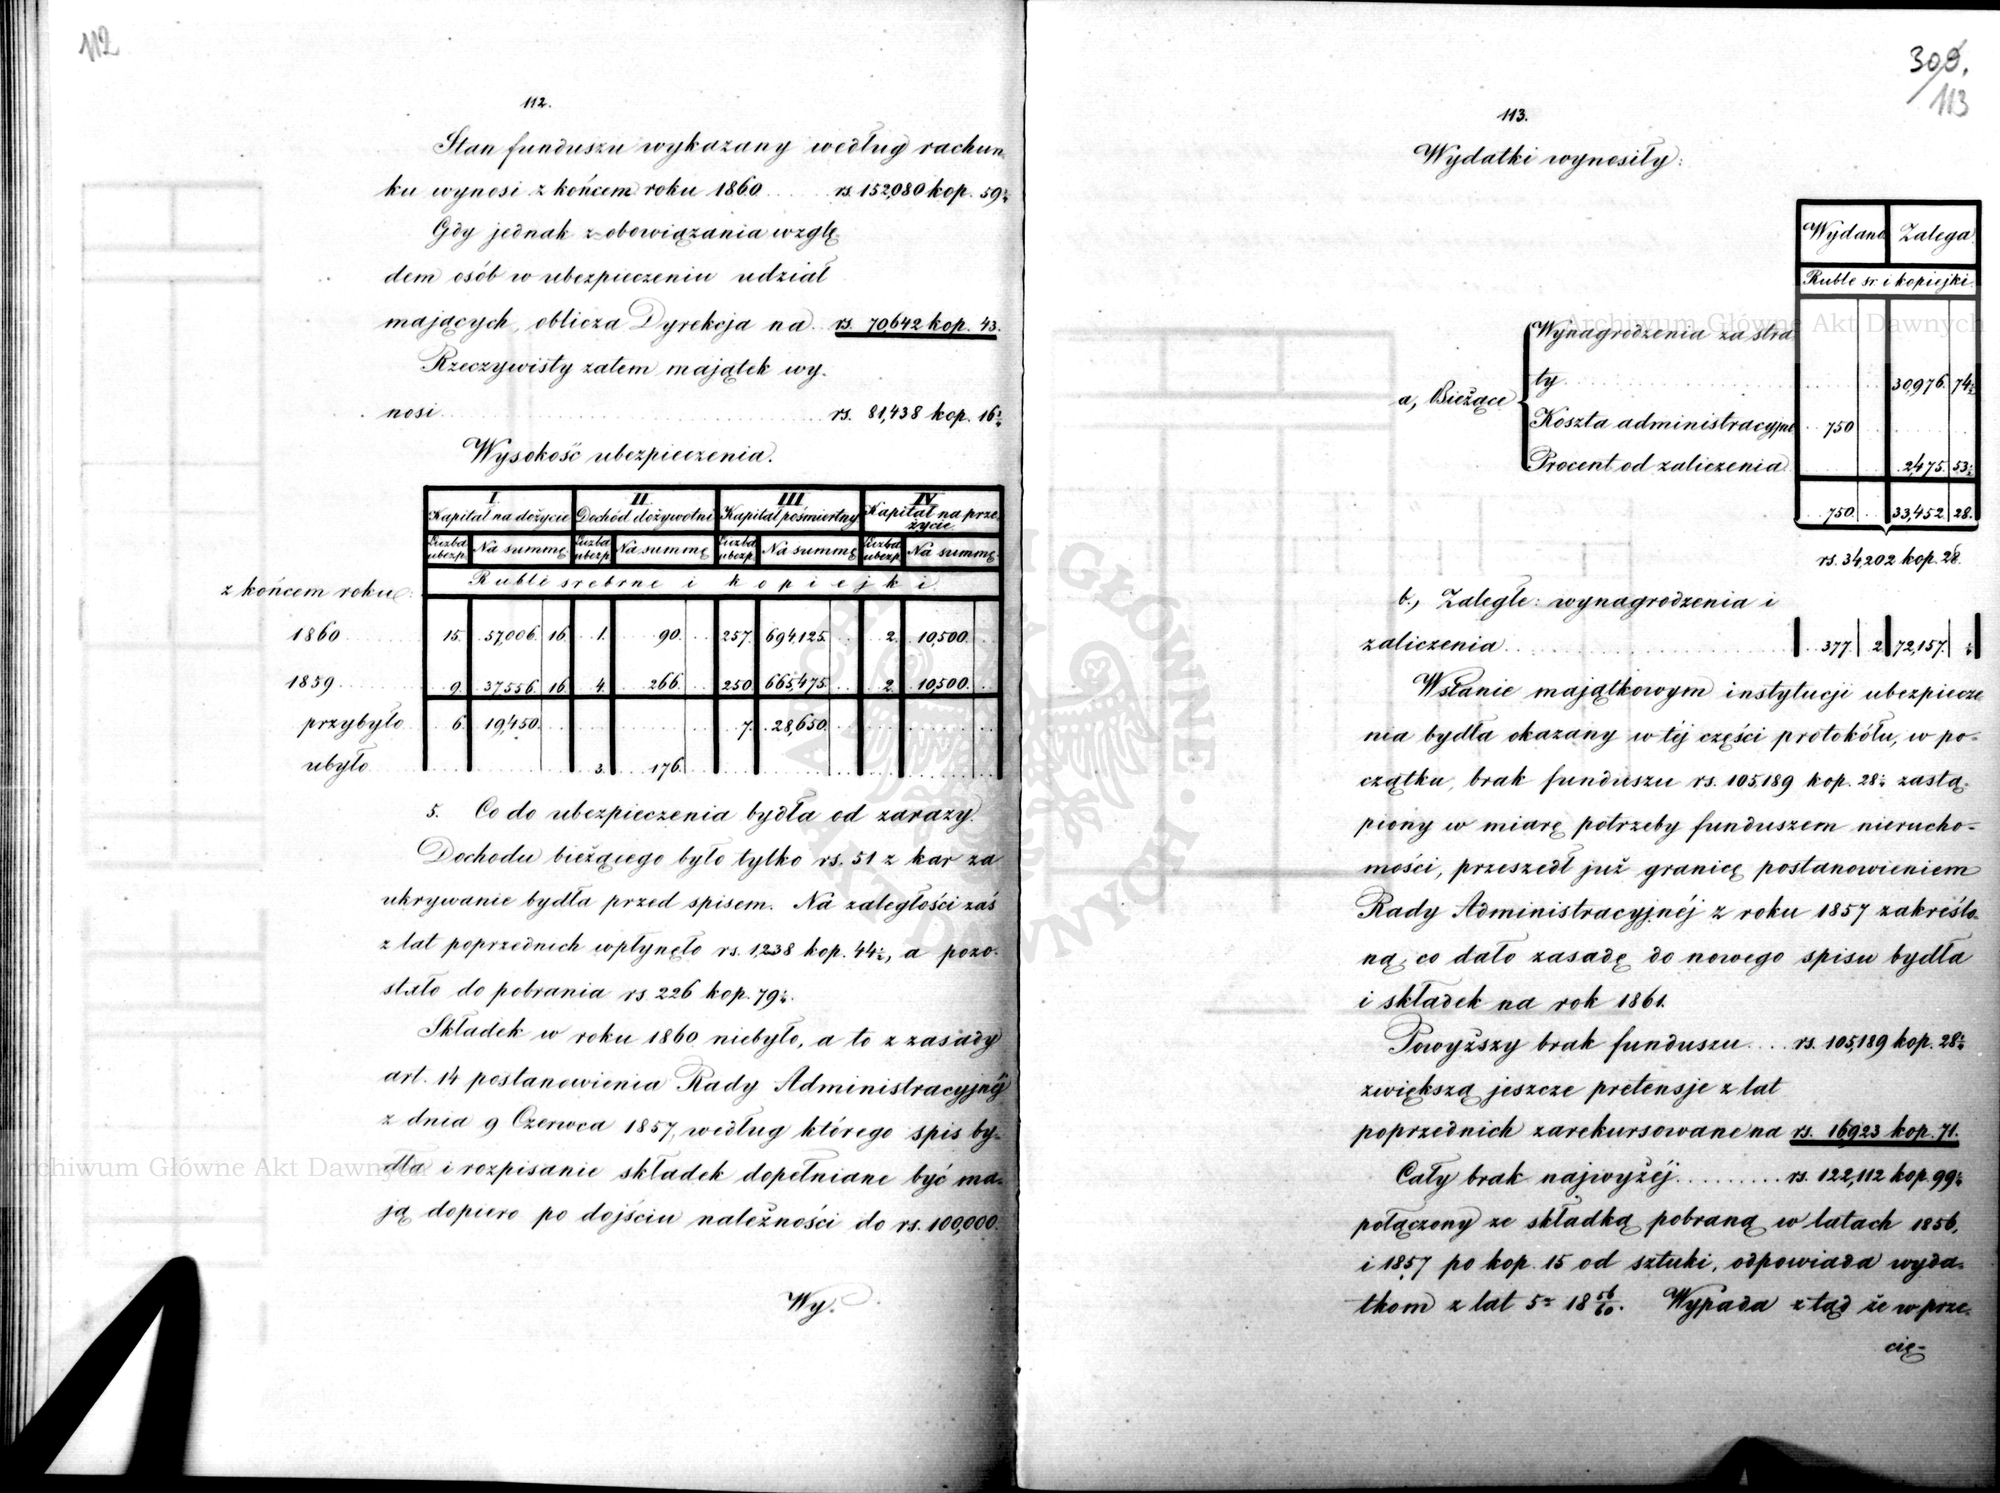 112
112.
Stan funduszu wykazany według rachun-
ku wynosi z końcem roku 1860 ..... rs. 152,080 kop. 59½
Gdy jednak zobowiązania wzglę-
dem osób w ubezpieczeniu udział
mających, oblicza Dyrekcja na .. rs. 70,642 kop. 43.
Rzeczywisty zatem majątek wy-
nosi ..... rs. 81,438 kop. 16½
Wysokość ubezpieczenia.
I. II. III IV
Kapitał na dożycie Dochód dożywotni Kapitał pośmiertny Kapitał na prze-
życie.
Liczba ubezp. Na summę Liczba ubezp. Na summę Liczba ubezp. Na summę Liczba ubezp. Na summę
Ruble srebrne i kopiejki
z końcem roku:
1860 15. 57,006. 16. 1. 90. 257. 694,125. 2. 10,500.
1859 9. 37,556. 16. 4. 266. 250. 665,475. 2. 10,500.
przybyło 6. 19,450. 7. 28,650.
ubyło 3. 176.
5. Co do ubezpieczenia bydła od zarazy.
Dochodu bieżącego było tylko rs. 51 z kar za
ukrywanie bydła przed spisem. Na zaległości zaś
z lat poprzednich wpłynęło rs. 1,238 kop. 44½, a pozo-
stało do pobrania rs. 226 kop. 79½.
Składek w roku 1860 niebyło, a to z zasady
art. 14 postanowienia Rady Administracyjnéj
z dnia 9 Czerwca 1857, według którego spis by-
dła i rozpisanie składek dopełniane być ma-
ją dopiero po dojściu należności do rs. 100,000.
Wy-
308.
113
113.
Wydatki wynosiły:
Wydano Zalega
Ruble sr. i kopiejki
a, Bieżące
Wynagrodzenia za stra-
ty 30,976. 74½
Koszta administracyjne 750
Procent od zaliczenia 2,475. 53½
750 33,452. 28.
rs. 34,202 kop. 28.
b., Zaległe: wynagrodzenia i
zaliczenia ..... 377. 2 72,157. ½
Wstanie majątkowym instytucji ubezpiecze
nia bydła okazany w téj części protokółu, w po-
czątku, brak funduszu rs. 105,189 kop. 28½ zastą-
piony w miarę potrzeby funduszem nierucho-
mości, przeszedł już granicę postanowieniem
Rady Administracyjnéj z roku 1857 zakreślo-
ną, co dało zasadę do nowego spisu bydła
i składek na rok 1861.
Powyższy brak funduszu ... rs. 105,189 kop. 28½
zwiększą jeszcze pretensje z lat
poprzednich zarekursowane na rs. 16,923 kop. 71.
Cały brak najwyżéj ......... rs. 122,112 kop. 99½
połączony ze składką pobraną w latach 1856,
i 1857 po kop. 15 od sztuki, odpowiada wyda-
tkom z lat 5= 18 56/60. Wypada ztąd że w prze-
cię-
Archiwum Główne Akt Dawnych
Archiwum Główne Akt Dawnych
ARCHIWUM GŁÓWNE AKT DAWNYCH